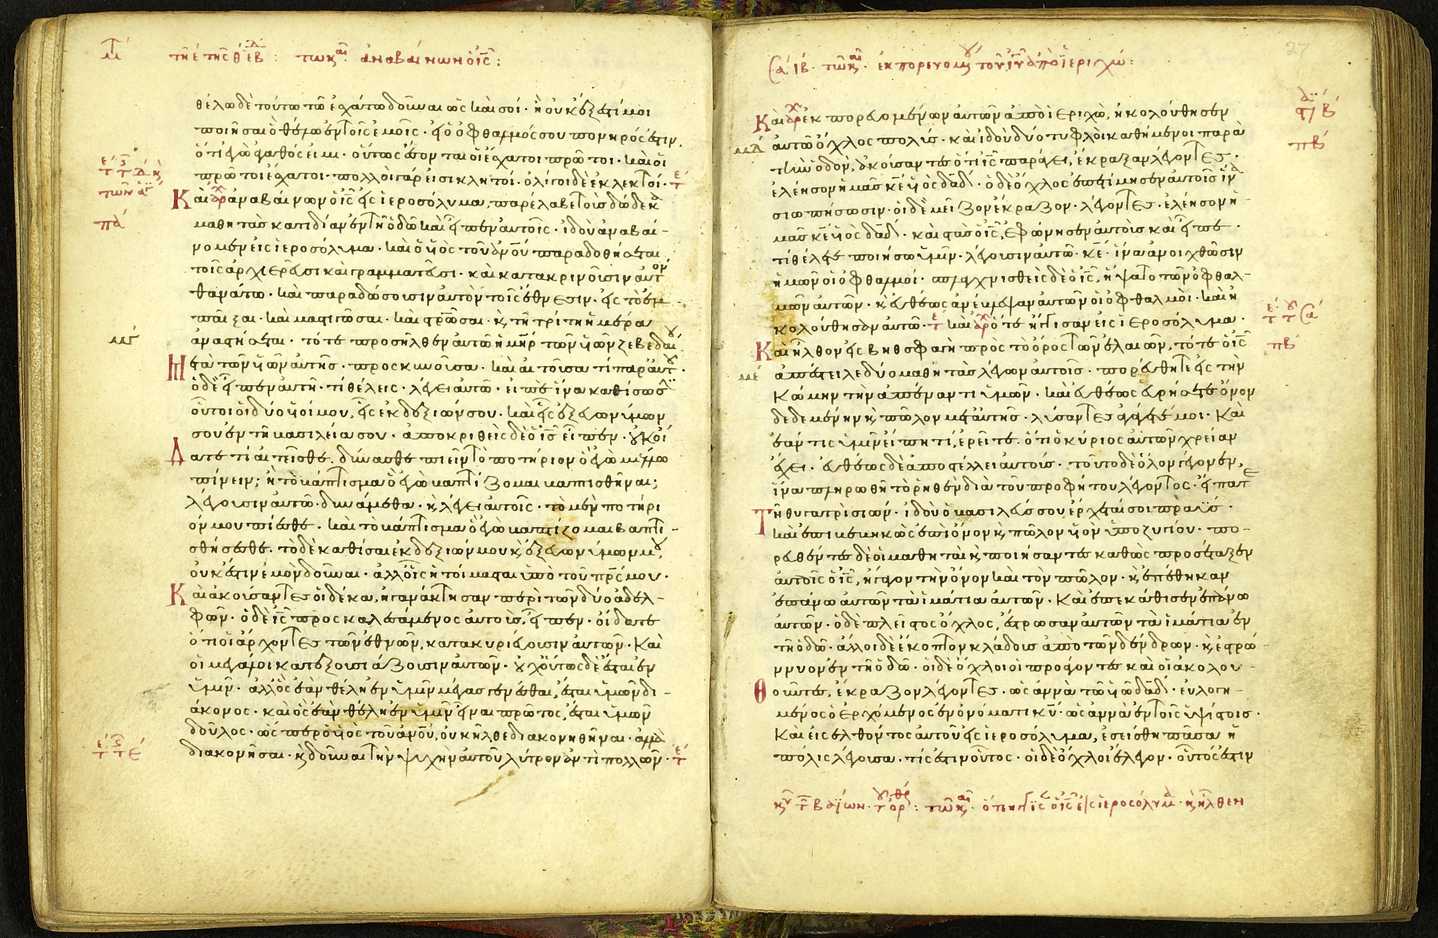 τῆ ε τῆς θ ἑβδ: τῶ και ἀναβαίνων ὁ ις:
θέλω δὲ τούτω τῶ ἐσχάτω δοῦναι ὡς καὶ σοί· ἢ οὐκ ἔξεστί μοι
ποιῆσαι ὃ θέλω ἐν τοῖς ἐμοῖς· εἰ ὁ ὀφθαλμός σου πονηρός ἐστιν,
ὅτι ἐγὼ ἀγαθός εἰμι· οὕτως ἔσονται οἱ ἔσχατοι πρῶτοι· καὶ οἱ
πρῶτοι ἔσχατοι· πολλοὶ γάρ εἰσι κλητοί· ὀλίγοι δὲ ἐκλεκτοί·
Καὶ ἀναβαίνων ὁ ις εἰς ἱεροσόλυμα, παρέλαβε τοὺς δώδεκα
μαθητὰς κατιδίαν ἐν τῆ ὁδῶ καὶ εἶπεν αὐτοῖς· ἰδοὺ ἀναβαί-
νομεν εἰς ἱεροσόλυμα· καὶ ὁ υἱὸς τοῦ ανου παραδοθήσεται
τοῖς ἀρχιερεῦσι καὶ γραμματεῦσι· καὶ κατακρινοῦσιν αὐτὸν
θανάτω· καὶ παραδώσουσιν αὐτὸν τοῖς ἔθνεσιν· εἰς τὸ ἐμ-
παῖξαι· καὶ μαστιγῶσαι· καὶ στρῶσαι· καὶ τῆ τρίτη ἡμέρα
ἀναστήσεται· τότε προσῆλθεν αὐτῶ ἡ μηρ τῶν υἱῶν ζεβεδαίου
Μετὰ τῶν υἱῶν αὐτῆς· προσκυνοῦσα· καὶ αἰτοῦσά τι παρ αὐτοῦ·
ὁ δὲ εἶπεν αὐτῆ· τί θέλεις· λέγει αὐτῶ· εἰπὲ ἵνα καθίσωσιν
οὗτοι οἱ δύο υἱοί μου, εἷς ἐκ δεξιῶν σου· καὶ εἷς ἐξ εὐωνύμων
σου ἐν τῆ βασιλεία σου· ἀποκριθεὶς δὲ ὁ ις εἶπεν· οὐκ οἴ
Δατε τί αἰτεῖσθε. δύνασθε πιεῖν τὸ ποτήριον ὃ ἐγὼ μέλλω
πίνειν; ἢ τὸ βάπτισμα ὃ ἐγὼ βαπτίζομαι βαπτισθῆναι;
λέγουσιν αὐτῶ· δυνάμεθα· καὶ λέγει αὐτοῖς· τὸ μὲν ποτήρι
όν μου πίεσθε· καὶ τὸ βάπτισμα ὃ ἐγὼ βαπτίζομαι βαπτι-
σθήσεσθε· τὸ δὲ καθίσαι ἐκ δεξιῶν μου καὶ ἐξ εὐωνύμων μου
οὐκ ἔστιν ἐμὸν δοῦναι· ἀλλ' οἷς ἡτοίμασται ὑπὸ τοῦ πρς μου·
Καὶ ἀκούσαντες οἱ δέκα, ἠγανάκτησαν περὶ τῶν δύο ἀδελ-
φῶν· ὁ δὲ ις προσκαλεσάμενος αὐτοὺς, εἶπεν· οἴδατε
ὅτι οἱ ἄρχοντες τῶν ἐθνῶν, κατακυριεύουσιν αὐτῶν· καὶ
οἱ μεγάλοι κατεξουσιάζουσιν αὐτῶν· οὐχ οὕτως δὲ ἔσται ἐν
ὑμῖν· ἀλλ' ὃς ἐὰν θέλη ἐν ὑμῖν μέγας γενέσθαι, ἔσται ὑμῶν δι-
άκονος· καὶ ὃς ἐὰν θέλη ἐν ὑμῖν εἶναι πρῶτος, ἔσται ὑμῶν
δοῦλος· ὥσπερ ὁ υἱὸς τοῦ ανου, οὐκ ἦλθε διακονηθῆναι· ἀλλὰ
διακονῆσαι· καὶ δοῦναι τὴν ψυχὴν αὐτοῦ λύτρον ἀντὶ πολλῶν·
τῶ και· ἐκπορευομ τοῦ ιυ ἀπὸ ἱεριχώ:
Καὶ ἐκπορευομένων αὐτῶν ἀπὸ ἱεριχὼ, ἠκολούθησεν
αὐτῶ ὄχλος πολύς· καὶ ἰδοὺ δύο τυφλοὶ καθήμενοι παρὰ
τὴν ὁδὸν, ἀκούσαντες ὅτι ις παράγει, ἔκραξαν λέγοντες·
ἐλέησον ἡμᾶς κε υἱὸς δαδ· ὁ δὲ ὄχλος ἐπετίμησεν αὐτοῖς ἵνα
σιωπήσωσιν· οἱ δὲ μεῖζον ἔκραζον· λέγοντες· ἐλέησον ἡ-
μᾶς κε υἱὸς δαδ· καὶ στὰς ὁ ις, ἐφώνησεν αὐτοὺς καὶ εἶπε·
τί θέλετε ποιήσω ὑμῖν· λέγουσιν αὐτῶ· κε· ἵνα ἀνοιχθῶσιν
ἡμῶν οἱ ὀφθαλμοί· σπλαγχνισθεὶς δὲ ὁ ις, ἥψατο τῶν ὀφθαλ-
μῶν αὐτῶν· καὶ εὐθέως ἀνέβλεψαν αὐτῶν οἱ ὀφθαλμοὶ· καὶ ἠ
κολούθησαν αὐτῶ· καὶ ὅτε ἤγγισαν εἰς ἱεροσόλυμα·
Καὶ ἦλθον εἰς βηθσφαγὴ πρὸς τὸ ὄρος τῶν ἐλαιῶν, τότε ὁ ις
ἀπέστειλε δύο μαθητὰς λέγων αὐτοῖς· πορεύθητε εἰς τὴν
κώμην τὴν ἀπέναντι ὑμῶν· καὶ εὐθέως εὑρήσετε ὄνον
δεδεμένην καὶ πῶλον μετ' αὐτῆς· λύσαντες ἀγάγετέ μοι· καὶ
ἐάν τις ὑμῖν εἴπη τί, ἐρεῖτε· ὅτι ὁ κύριος αὐτῶν χρείαν
ἔχει· εὐθέως δὲ ἀποστέλλει αὐτούς· τοῦτο δὲ ὅλον γέγονεν,
ἵνα πληρωθῆ τὸ ῥηθὲν διὰ τοῦ προφήτου λέγοντος· εἴπατε
Τῆ θυγατρὶ σιών· ἰδοὺ ὁ βασιλεύς σου ἔρχεταί σοι πραῢς·
καὶ ἐπιβεβηκὼς ἐπὶ ὄνον καὶ πῶλον υἱὸν ὑποζυγίου· πο-
ρευθέντες δὲ οἱ μαθηταὶ καὶ ποιήσαντες καθὼς προσέταξεν
αὐτοῖς ὁ ις, ἤγαγον τὴν ὄνον καὶ τὸν πῶλον· καὶ ἐπέθηκαν
ἐπάνω αὐτῶν τὰ ἱμάτια αὐτῶν· καὶ ἐπεκάθισεν ἐπάνω
αὐτῶν· ὁ δὲ πλεῖστος ὄχλος, ἔστρωσαν αὐτῶν τὰ ἱμάτια ἐν
τῆ ὁδῶ· ἄλλοι δὲ ἔκοπτον κλάδους ἀπὸ τῶν δένδρων· καὶ ἐστρώ-
ννυον ἐν τῆ ὁδῶ· οἱ δὲ ὄχλοι οἱ προάγοντες καὶ οἱ ἀκολου-
Θοῦντες, ἔκραζον λέγοντες· ὡσαννὰ τῶ υἱῶ δαδ· εὐλογη-
μένος ὁ ἐρχόμενος ἐν ὀνόματι κυ· ὡσαννὰ ἐν τοῖς ὑψίστοις·
Καὶ εἰσελθόντος αὐτοῦ εἰς ἱεροσόλυμα, ἐσείσθη πᾶσα ἡ
πόλις λέγουσα· τίς ἐστιν οὗτος· οἱ δὲ ὄχλοι ἔλεγον· οὗτός ἐστιν